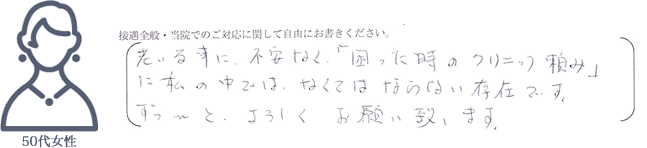 接遇全般・当院でのご対応に関して自由にお書きください。
老いる事に、不安なく、「困った時のクリニック頼み」
に私の中では、なくてはならない存在です。
ずっ〜と、よろしくお願い致します。
50代女性